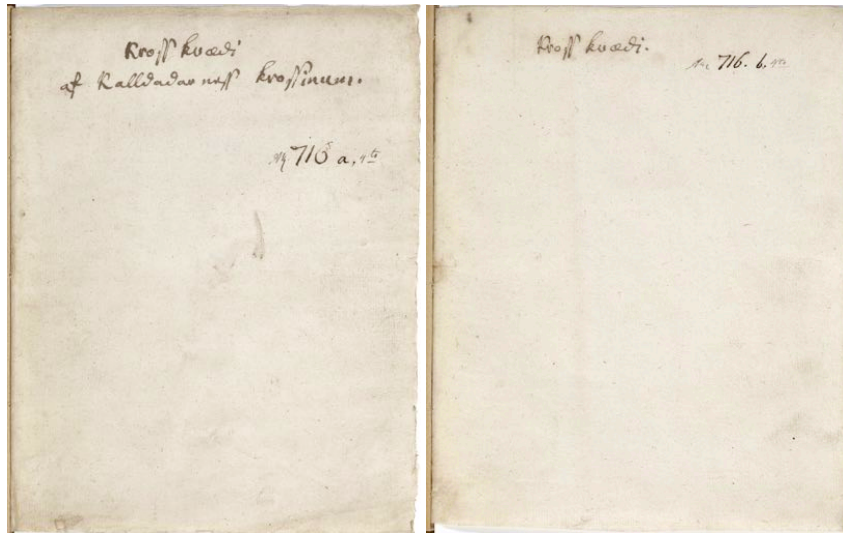 Kross kvædi
af Kalldadar ness krossinum.
716 a. 4to
Kross kvædi.
716. b. 4to